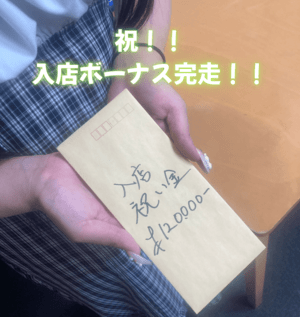 祝！！
入店ボーナス完走！！
入店
祝い金
¥120000-